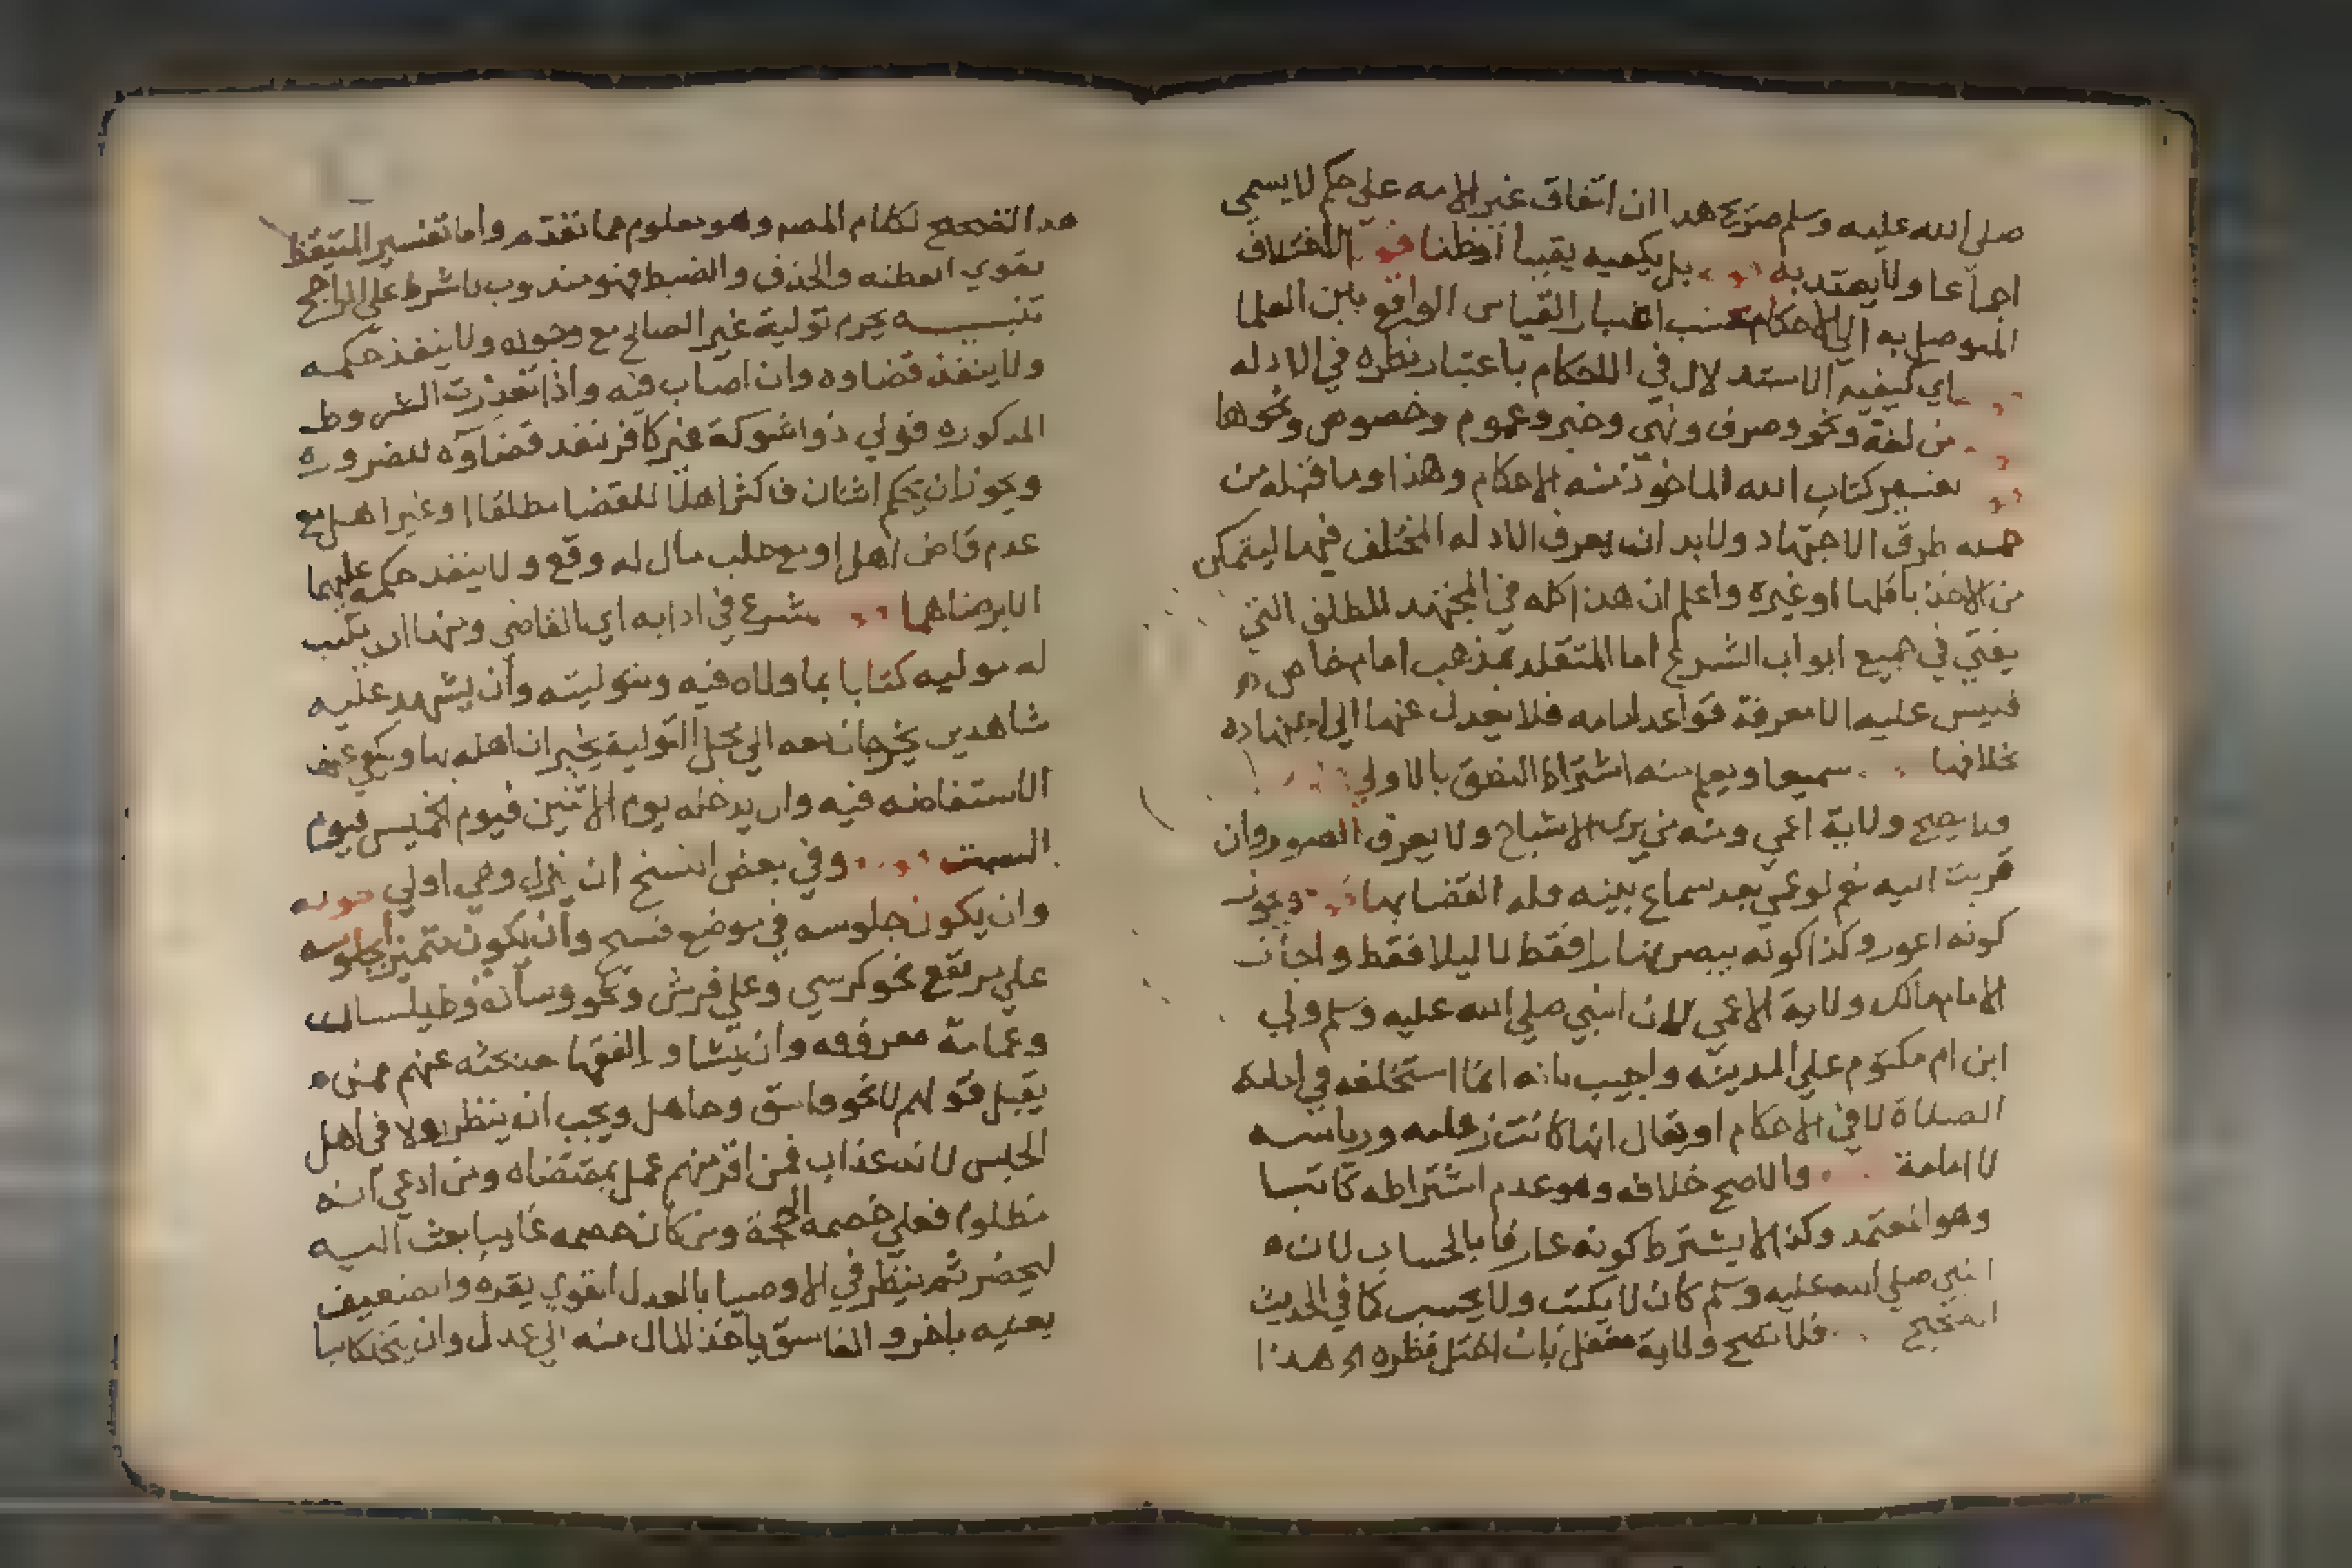 صلي الله عليه وسلم صرح هذا ان اتفاق غير الامه علي حكم لا يسمي
اجماعا ولا يعتد به بل يكفيه يقينا او ظنا الاختلاف
الموصل به الي الاحكام اختبار القياس الواقع بين العلما
اي كيفية الاستدلال في الاحكام باعتبار نظره في الادله
من لغة ونحو وصرف ونهي وخبر وعموم وخصوص ونحوها
تفسير كتاب الله الماخوذ منه الاحكام وهذا وما قبله من
جمله طرق الاجتهاد ولابد ان يعرف الادله المختلف فيها ليتمكن
من الاخذ باقلها او غيره واعلم ان هذا كله في المجتهد المطلق الذي
يفتي في جميع ابواب الشرع اما المتقلد بمذهب امام خاص
فليس عليه الا معرفة قواعد امامه فلا يعدل عنها الي اجتهاده
بخلافها سميعا ويعلم منه اشتراط النطق بالاولي
ولا يصح ولاية اعمي ومنه من يري الاشباح ولا يعرف الصور وان
قربت اليه نعم لو عمي بعد سماع بينه فله القضا بها ويجوز
كونه اعور وكذا كونه يبصر نهارا فقط لا ليلا فقط واجاز
الامام مالك ولاية الاعمي لان النبي صلي الله عليه وسلم ولي
ابن ام مكتوم علي المدينه واجيب بانه انما استخلفه في امامة
الصلاة لا في الاحكام او يقال انها كانت نظر عليه ورياسه
لا امامة والاصح خلافه وهو عدم اشتراطه كاتبا
وهو المعتمد وكذا لا يشترط كونه عارفا بالحساب لانه
النبي صلي الله عليه وسلم كان لا يكتب ولا يحسب كما في الحديث
الصحيح فلا تصح ولاية مغفل بان اختل نظره الخ هذا
هذا الصحيح لكلام المصم وهو معلوم مما تقدم واما تفسير المتيقظ
بقوي الفطنه والحذق والضبط فهو مندوب لا شرط علي الراجح
تنبيه يحرم تولية غير الصالح مع وجوده ولا ينفذ حكمه
ولا ينفذ قضاوه وان اصاب فيه واذا تعذرت الشروط
المذكوره فولي ذو الشوكة غير كافر نفذ قضاوه للضروره
ويجوز ان يحكم اثنان فاكثر اهلا للقضا مطلقا او غير اهل مع
عدم قاض اهل او مع طلب مال له وقع ولا ينفذ حكمه عليهما
الا برضاهما يشرع في ادابه اي القاضي ومنها ان يكتب
له موليه كتابا بما ولاه فيه وبتوليته وان يشهد عليه
شاهدين يخرجان معه الي محل التولية يخبران اهله بها ويكفي عنه
الاستفاضه فيه وان يدخله يوم الاثنين فيوم الخميس فيوم
السبت وفي بعض النسخ ان ينزل وهي اولي
وان يكون جلوسه في موضع فسيح وان يكون متميز بجلوسه
علي مرتفع نحو كرسي وعلي فرش ونحو وسادة وطيلسان
وعمامة معروفه وان يشاور الفقها عنهم ممن
يقبل قولهم لا نحو فاسق وجاهل ويجب ان ينظر اولا في اهل
الحبس لانه عذاب فمن اقر منهم عمل بمقتضاه ومن ادعي انه
مظلوم فعلي خصمه الحجة ومن كان خصمه غايبا بعث اليه
ليحضر ثم ينظر في الاوصيا بالعدل القوي يقره والضعيف
يعينه باخر والفاسق ياخذ المال منه الي عدل وان يتخذ كاتبا